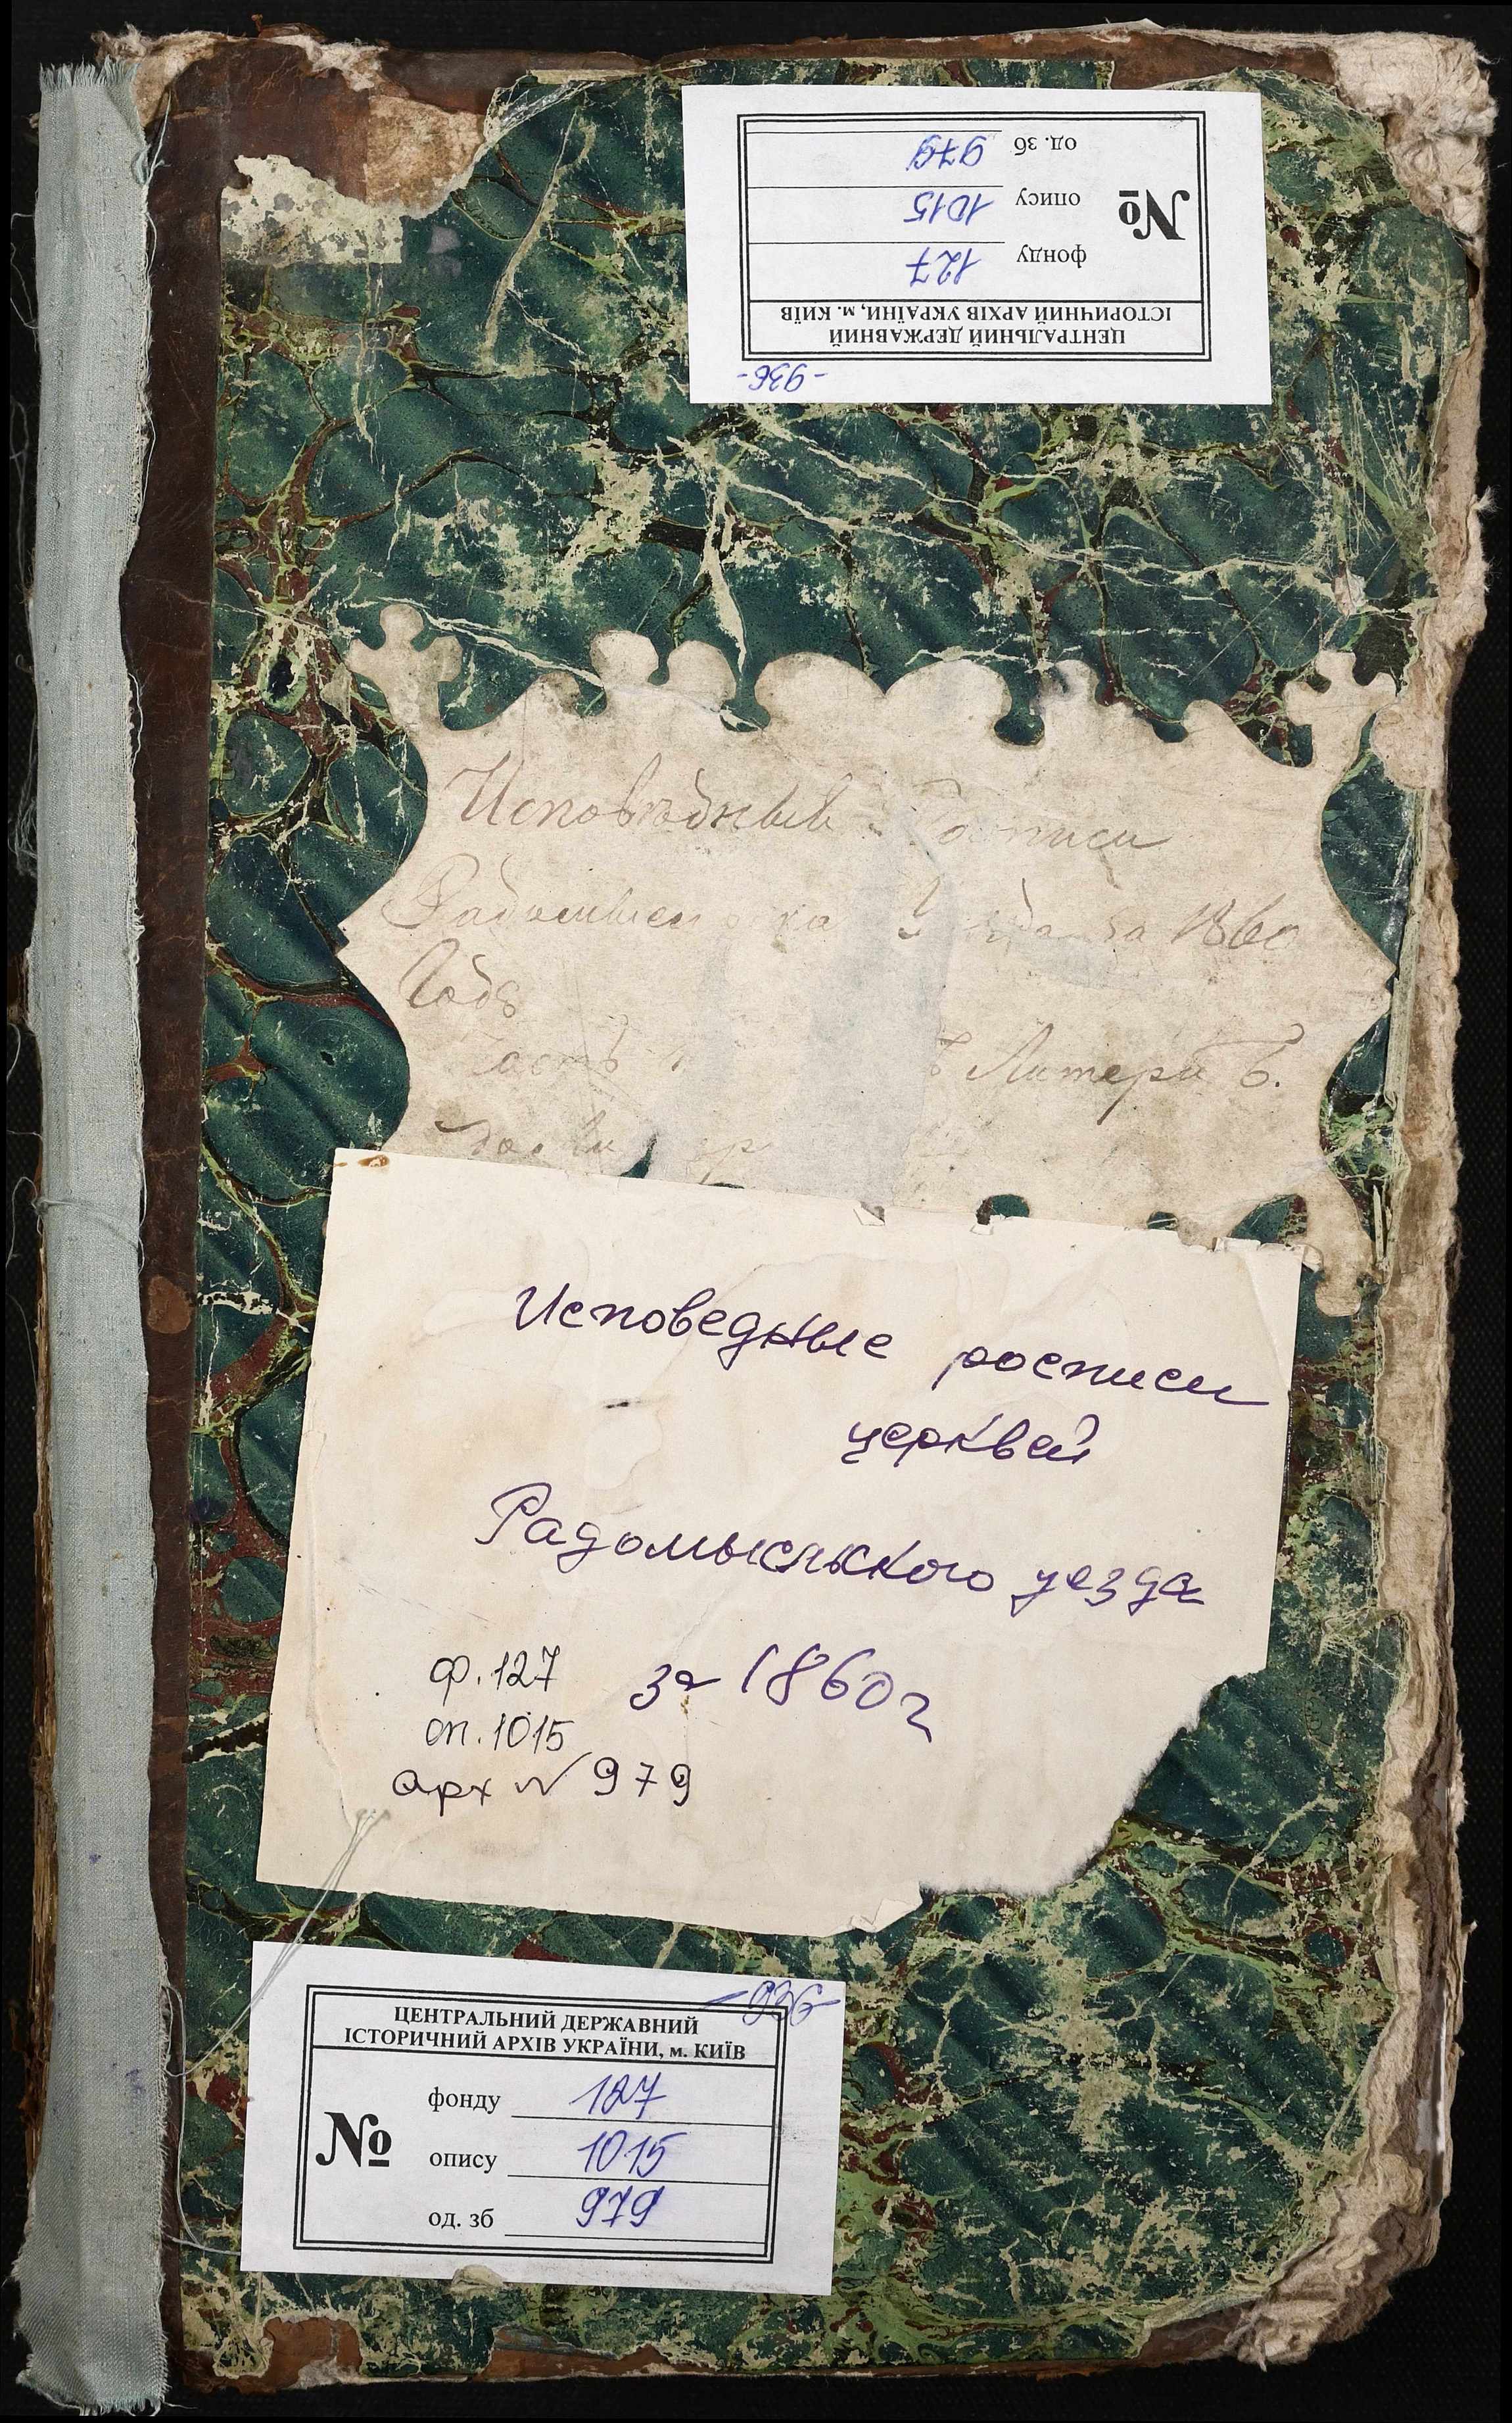 од. зб 979
опису 1015
фонду 127
№
ЦЕНТРАЛЬНИЙ ДЕРЖАВНИЙ
ІСТОРИЧНИЙ АРХІВ УКРАЇНИ, м. КИЇВ
-936-
Исповѣдныя Росписи
за 1860
Годъ
Литера Б.
Исповедные росписи
церквей
Радомысльского уезда
за 1860 г
ф. 127
оп. 1015
арх № 979
-936-
ЦЕНТРАЛЬНИЙ ДЕРЖАВНИЙ
ІСТОРИЧНИЙ АРХІВ УКРАЇНИ, м. КИЇВ
№
фонду 127
опису 1015
од. зб 979